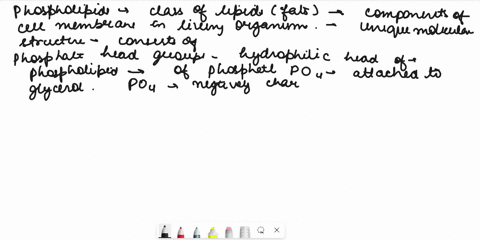 Phospholipids → class of lipids (fats) → components of
cell membrane in living organism. - Unique molecular
structure - consists of
Phosphate head group - hydrophilic head of →
phospholipid → of phosphate PO4 - attached to
glycerol. PO4 → negatively char